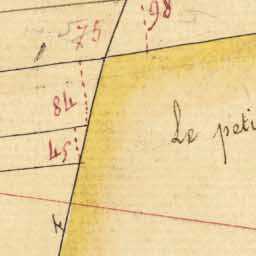 98
75
84
Le peti
45